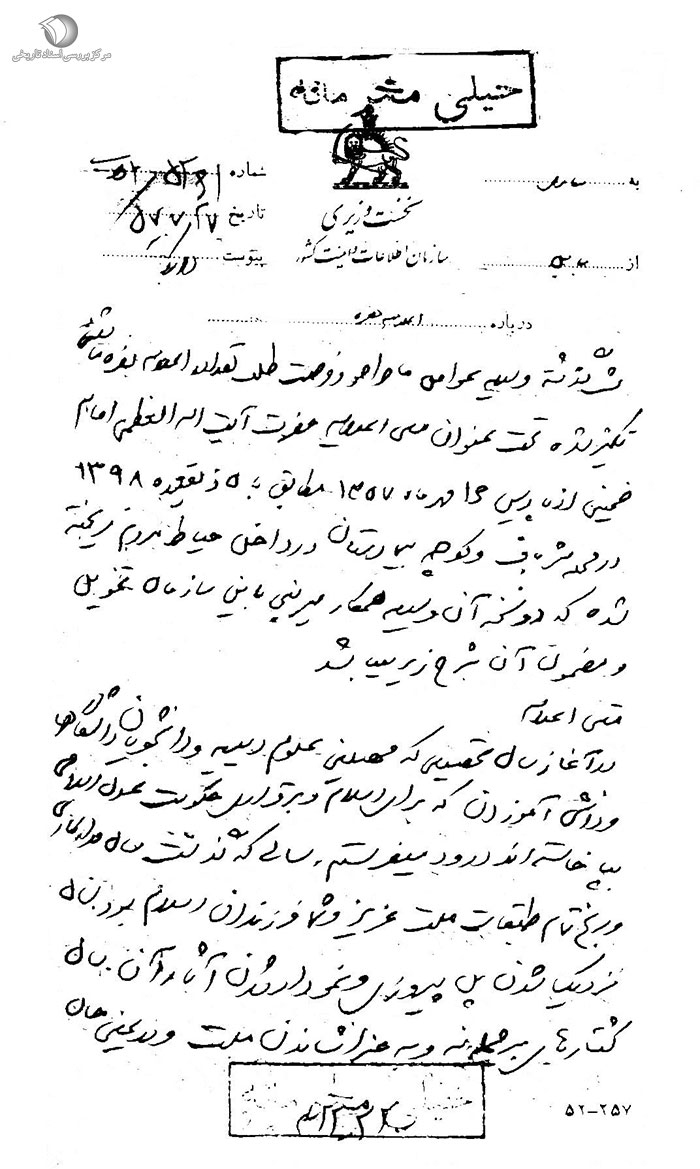 مرکز بررسی اسناد تاریخی
خیلی محرمانه
نخست وزیری
سازمان اطلاعات و امنیت کشور
به
از
شماره
تاریخ ۵۷/۷/۲۷
پیوست
درباره اعلامیه مضره
شب گذشته وسیله عوامل ماجراجو و فرصت طلب تعدادی اعلامیه مضره
تکثیر شده تحت عنوان متن اعلامیه حضرت آیت اله العظمی امام
خمینی از پاریس ۱۶ مهرماه ۱۳۵۷ مطابق با ۵ ذیقعده ۱۳۹۸
در محله و کوچه بیمارستان در داخل حیاط مردم ریخته
شده که دو نسخه آن وسیله همکار باین سازمان تحویل
و مضمون آن بشرح زیر میباشد
متن اعلامیه
در آغاز سال تحصیلی که محصلین علوم دینیه و دانشجویان دانشگاهها
و دانش آموزان که برای اسلام و برقراری حکومت عدل اسلامی
بپا خاسته اند درود میفرستم. سالی که گذشت سال
و رنج تمام طبقات ملت عزیز و شما فرزندان اسلام بود سال
نزدیک شدن پیروزی و نمودار شدن آثار آن سال
کشتارهای بیرحمانه و به عزا نشاندن ملت و
۵۲-۲۵۷